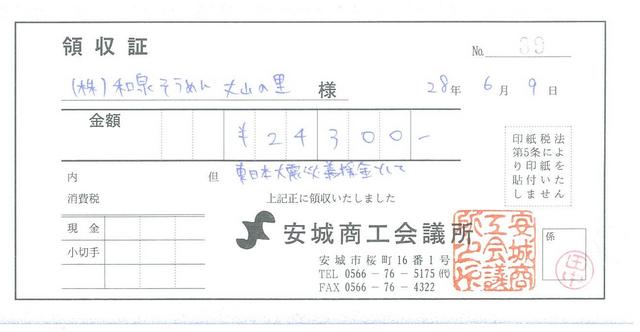 領収証
No. 39
(株)和泉そうめん 丈山の里 様
28年 6月 9日
金額
¥24300-
印紙税法
第5条によ
り印紙を
貼付いた
しません
内
但 東日本大震災義援金として
消費税
上記正に領収いたしました
現金
小切手
安城商工会議所
安城市桜町16番1号
TEL 0566-76-5175㈹
FAX 0566-76-4322
係
田中